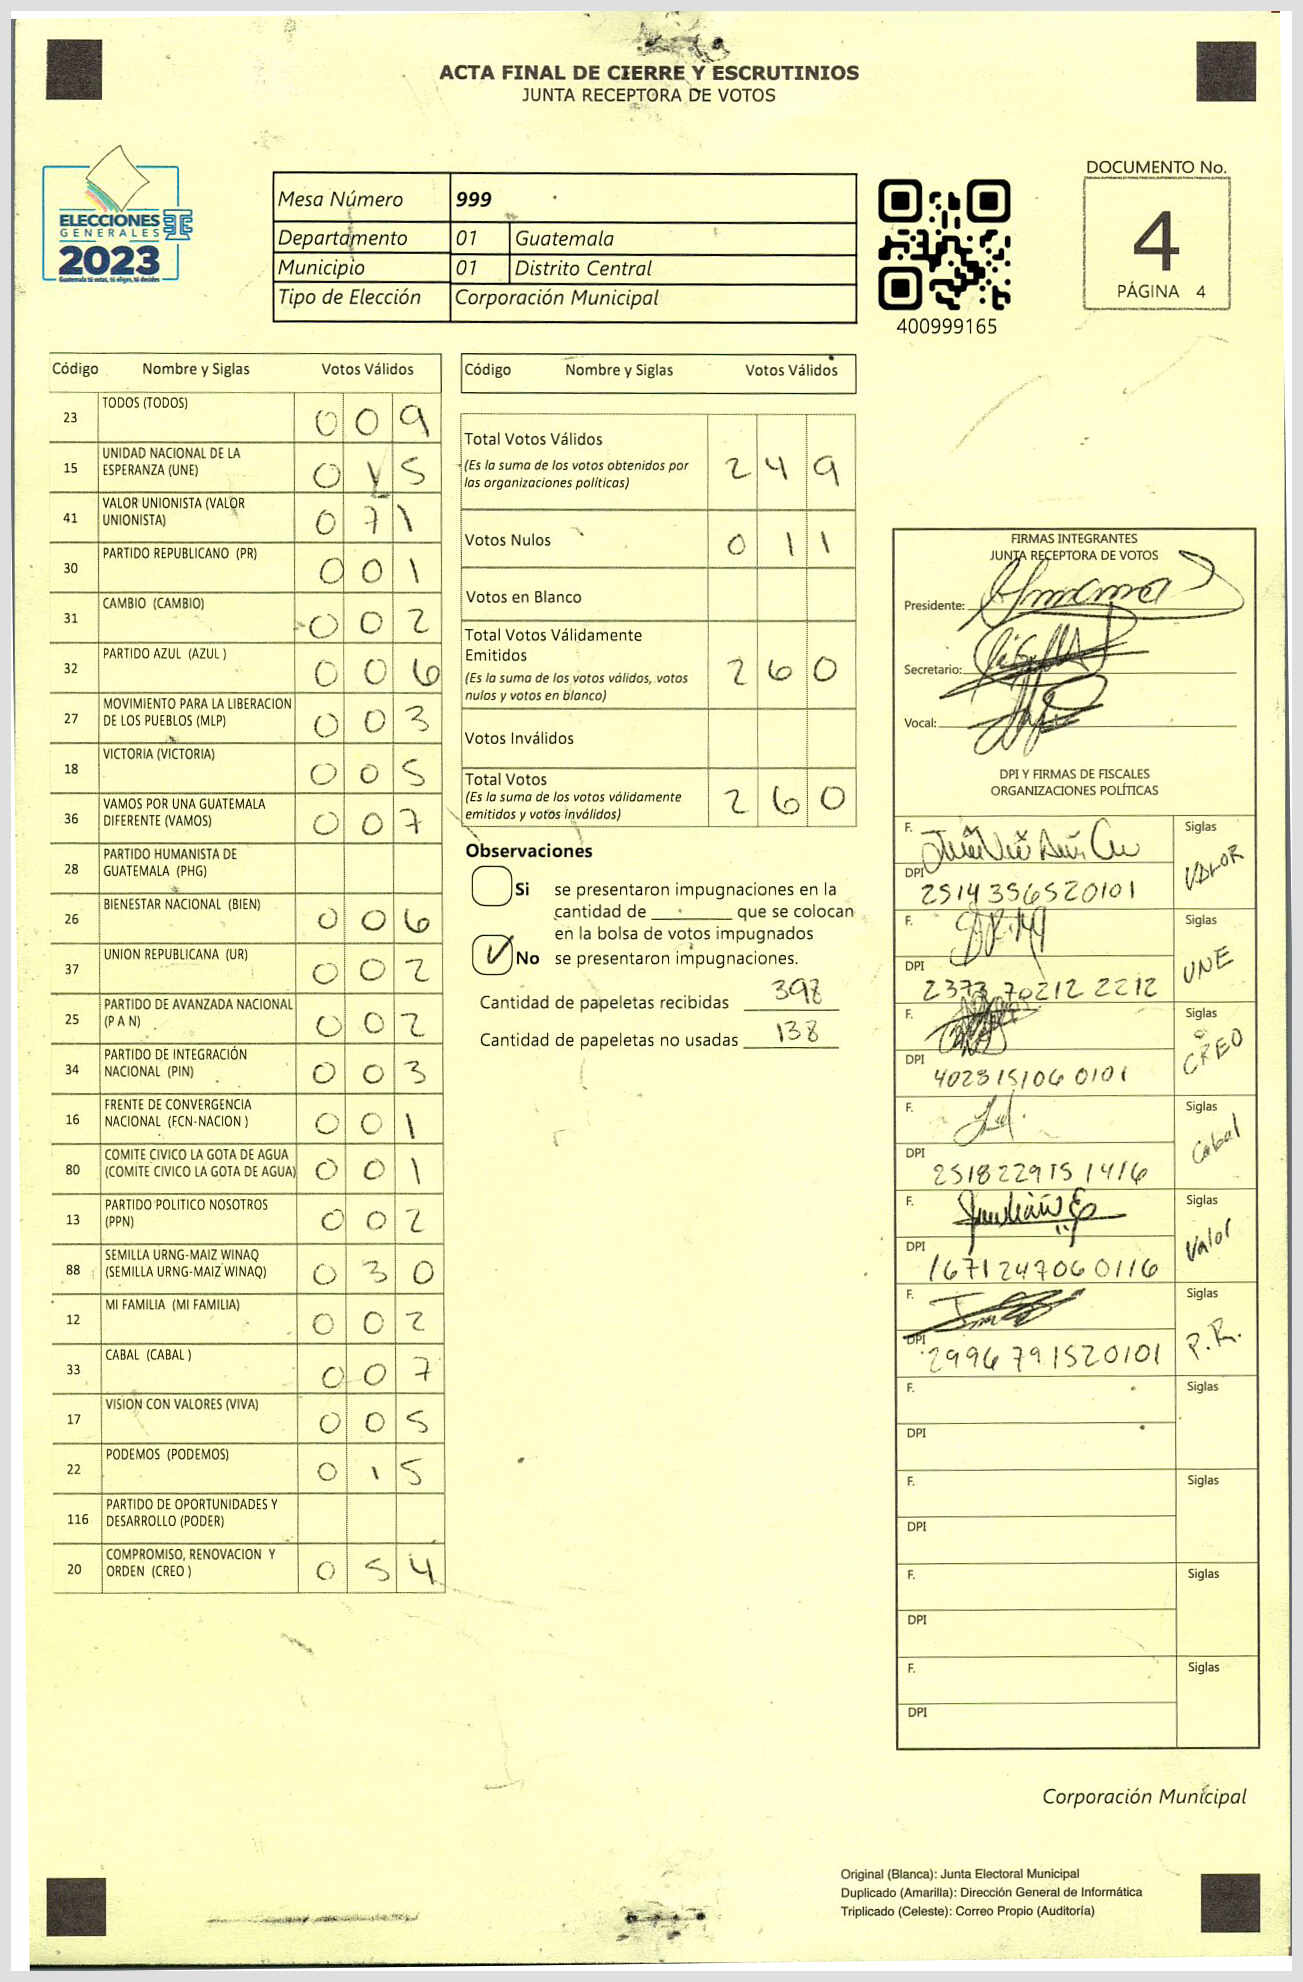 ACTA FINAL DE CIERRE Y ESCRUTINIOS
JUNTA RECEPTORA DE VOTOS
ELECCIONES
GENERALES
2023
Guatemala tú votas, tú eliges, tú decides
Mesa Número 999
Departamento 01 Guatemala
Municipio 01 Distrito Central
Tipo de Elección Corporación Municipal
400999165
DOCUMENTO No.
4
PÁGINA 4
Código Nombre y Siglas Votos Válidos
23 TODOS (TODOS) 0 0 9
15 UNIDAD NACIONAL DE LA
ESPERANZA (UNE) 0 1 5
41 VALOR UNIONISTA (VALOR
UNIONISTA) 0 7 1
30 PARTIDO REPUBLICANO (PR) 0 0 1
31 CAMBIO (CAMBIO) 0 0 2
32 PARTIDO AZUL (AZUL ) 0 0 6
27 MOVIMIENTO PARA LA LIBERACION
DE LOS PUEBLOS (MLP) 0 0 3
18 VICTORIA (VICTORIA) 0 0 5
36 VAMOS POR UNA GUATEMALA
DIFERENTE (VAMOS) 0 0 7
28 PARTIDO HUMANISTA DE
GUATEMALA (PHG)
26 BIENESTAR NACIONAL (BIEN) 0 0 6
37 UNION REPUBLICANA (UR) 0 0 2
25 PARTIDO DE AVANZADA NACIONAL
(P A N) 0 0 2
34 PARTIDO DE INTEGRACIÓN
NACIONAL (PIN) 0 0 3
16 FRENTE DE CONVERGENCIA
NACIONAL (FCN-NACION ) 0 0 1
80 COMITE CIVICO LA GOTA DE AGUA
(COMITE CIVICO LA GOTA DE AGUA) 0 0 1
13 PARTIDO POLITICO NOSOTROS
(PPN) 0 0 2
88 SEMILLA URNG-MAIZ WINAQ
(SEMILLA URNG-MAIZ WINAQ) 0 3 0
12 MI FAMILIA (MI FAMILIA) 0 0 2
33 CABAL (CABAL ) 0 0 7
17 VISION CON VALORES (VIVA) 0 0 5
22 PODEMOS (PODEMOS) 0 1 5
116 PARTIDO DE OPORTUNIDADES Y
DESARROLLO (PODER)
20 COMPROMISO, RENOVACION Y
ORDEN (CREO ) 0 5 4
Código Nombre y Siglas Votos Válidos
Total Votos Válidos 2 4 9
(Es la suma de los votos obtenidos por
las organizaciones políticas)
Votos Nulos 0 1 1
Votos en Blanco
Total Votos Válidamente
Emitidos 2 6 0
(Es la suma de los votos válidos, votos
nulos y votos en blanco)
Votos Inválidos
Total Votos 2 6 0
(Es la suma de los votos válidamente
emitidos y votos inválidos)
Observaciones
Si se presentaron impugnaciones en la
cantidad de ________ que se colocan
en la bolsa de votos impugnados
No se presentaron impugnaciones.
Cantidad de papeletas recibidas 398
Cantidad de papeletas no usadas 138
FIRMAS INTEGRANTES
JUNTA RECEPTORA DE VOTOS
Presidente:
Secretario:
Vocal:
DPI Y FIRMAS DE FISCALES
ORGANIZACIONES POLÍTICAS
F. Siglas
VALOR
DPI 2514356520101
F. Siglas
UNE
DPI 2373 70212 2212
F. Siglas
CREO
DPI 402315106 0101
F. Siglas
Cabal
DPI 2518229151416
F. Siglas
Valor
DPI 1671247060116
F. Siglas
P.R.
DPI 2996791520101
F. Siglas
DPI
F. Siglas
DPI
F. Siglas
DPI
F. Siglas
DPI
Corporación Municipal
Original (Blanca): Junta Electoral Municipal
Duplicado (Amarilla): Dirección General de Informática
Triplicado (Celeste): Correo Propio (Auditoría)